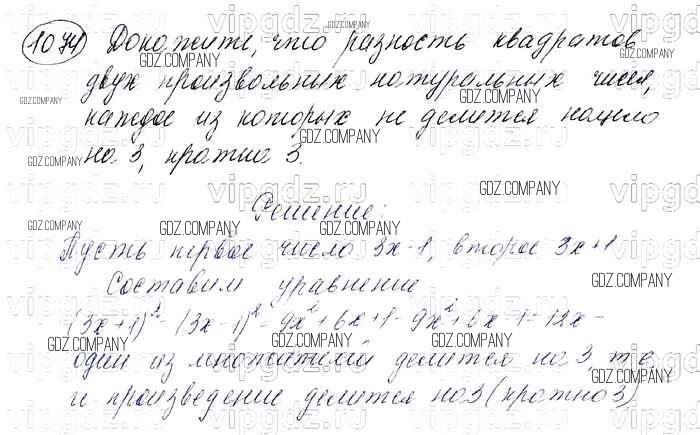 1074 Докажите, что разность квадратов
двух произвольных натуральных чисел,
каждое из которых не делится нацело
на 3, кратна 3.
Решение:
Пусть первое число 3x-1, второе 3x+1
Составим уравнение
(3x+1)² - (3x-1)² = 9x² + 6x + 1 - 9x² + 6x - 1 = 12x -
один из множителей делится на 3, т.е
и произведение делится на 3 (кратно 3)
GDZ.COMPANY
vipgdz.ru